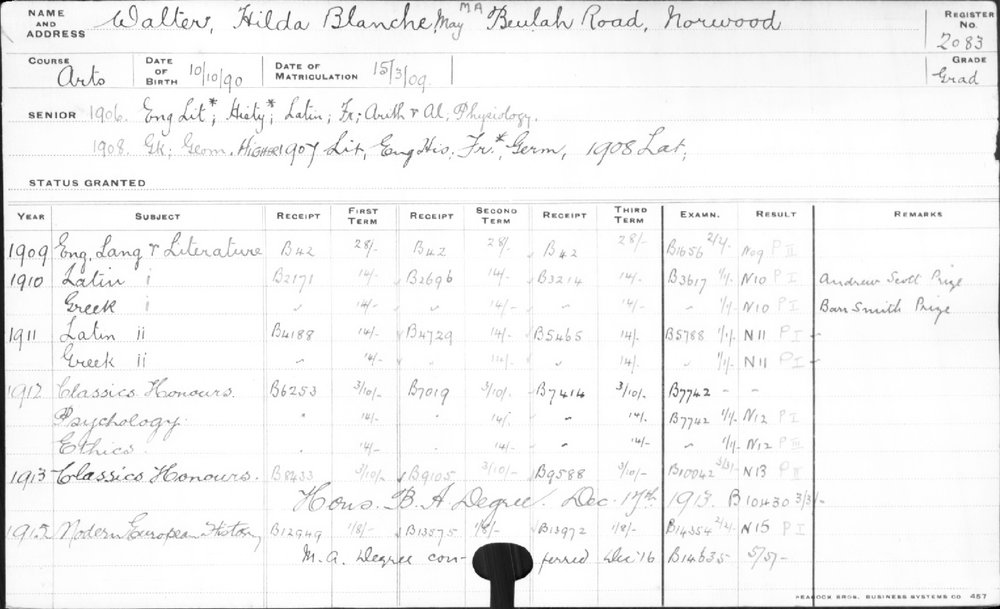 NAME AND ADDRESS Walter, Hilda Blanche May MA Beulah Road, Norwood REGISTER No. 2083
COURSE Arts DATE OF BIRTH 10/10/90 DATE OF MATRICULATION 15/3/09. GRADE Grad
SENIOR 1906. Eng Lit*; Histy*; Latin; Fr; Arith & Al; Physiology.
1908. Gk; Geom. HIGHER 1907 Lit, Eng His; Fr.*, Germ, 1908 Lat;
STATUS GRANTED
YEAR SUBJECT RECEIPT FIRST TERM RECEIPT SECOND TERM RECEIPT THIRD TERM EXAMN. RESULT REMARKS
1909 Eng. Lang & Literature B42 28/- B42 28/- B42 28/- B1656 2/2/- N09 P II
1910 Latin i B2171 14/- B2696 14/- B3214 14/- B3617 1/1/- N10 P I Andrew Scott Prize
Greek i " 14/- " 14/- " 14/- " 1/1/- N10 P I Barr Smith Prize
1911 Latin ii B4188 14/- B4729 14/- B5465 14/- B5788 1/1/- N11 P I -
Greek ii " 14/- " 14/- " 14/- " 1/1/- N11 P I -
1912 Classics Honours. B6253 3/10/- B7019 3/10/- B7414 3/10/- B7742 - -
Psychology. " 14/- " 14/- " 14/- B7742 1/1/- N12 P I
Ethics. 14/- " 14/- " 14/- " 1/1/- N12 P III
1913 Classics Honours. B8433 3/10/- B9105 3/10/- B9588 3/10/- B10042 3/3/- N13 P II
Hons. B.A. Degree. Dec. 17th 1913. B10430 3/3/-
1915 Modern European History B12949 1/8/- B13575 1/8/- B13972 1/8/- B14354 2/2/- N15 P I
M.A. Degree con- ferred Dec '16 B14635 5/5/-
PEACOCK BROS. BUSINESS SYSTEMS CO 457